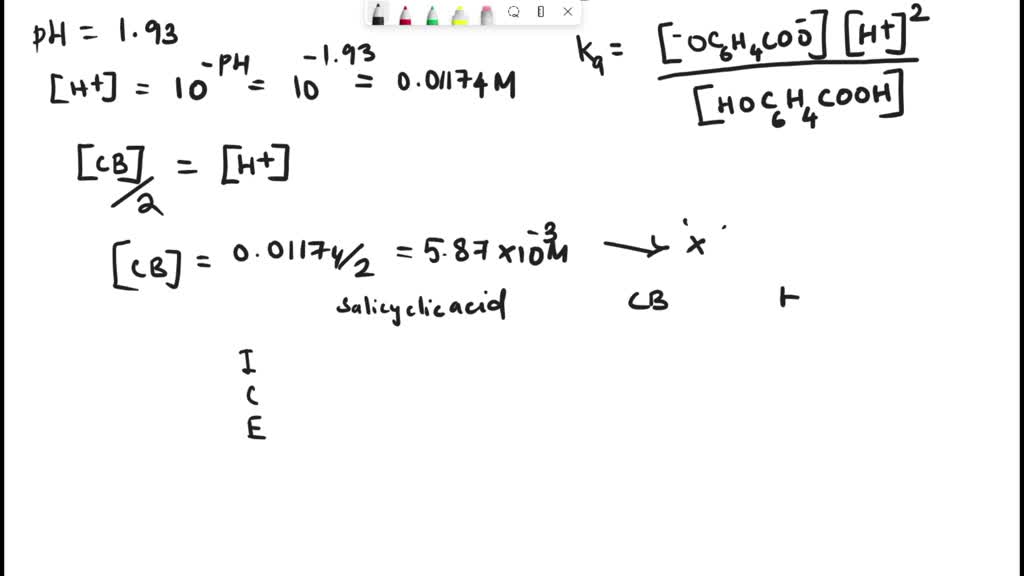 pH = 1.93
[H+] = 10^-PH = 10^-1.93 = 0.01174 M
Kq = [⁻OC6H4COO⁻] [H+]² / [HOC6H4COOH]
[CB]/2 = [H+]
[CB] = 0.01174/2 = 5.87 x10^-3 M → 'x'
salicyclic acid CB H
I
C
E